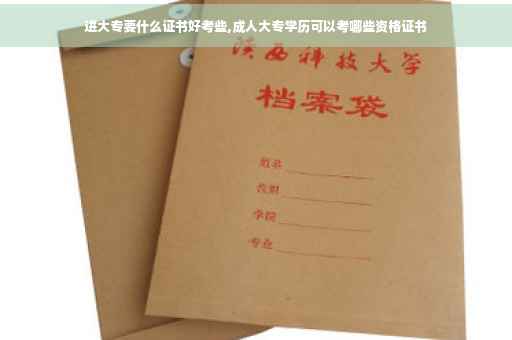 进大专要什么证书好考些,成人大专学历可以考哪些资格证书
陕西科技大学
档案袋
姓名
学院
专业